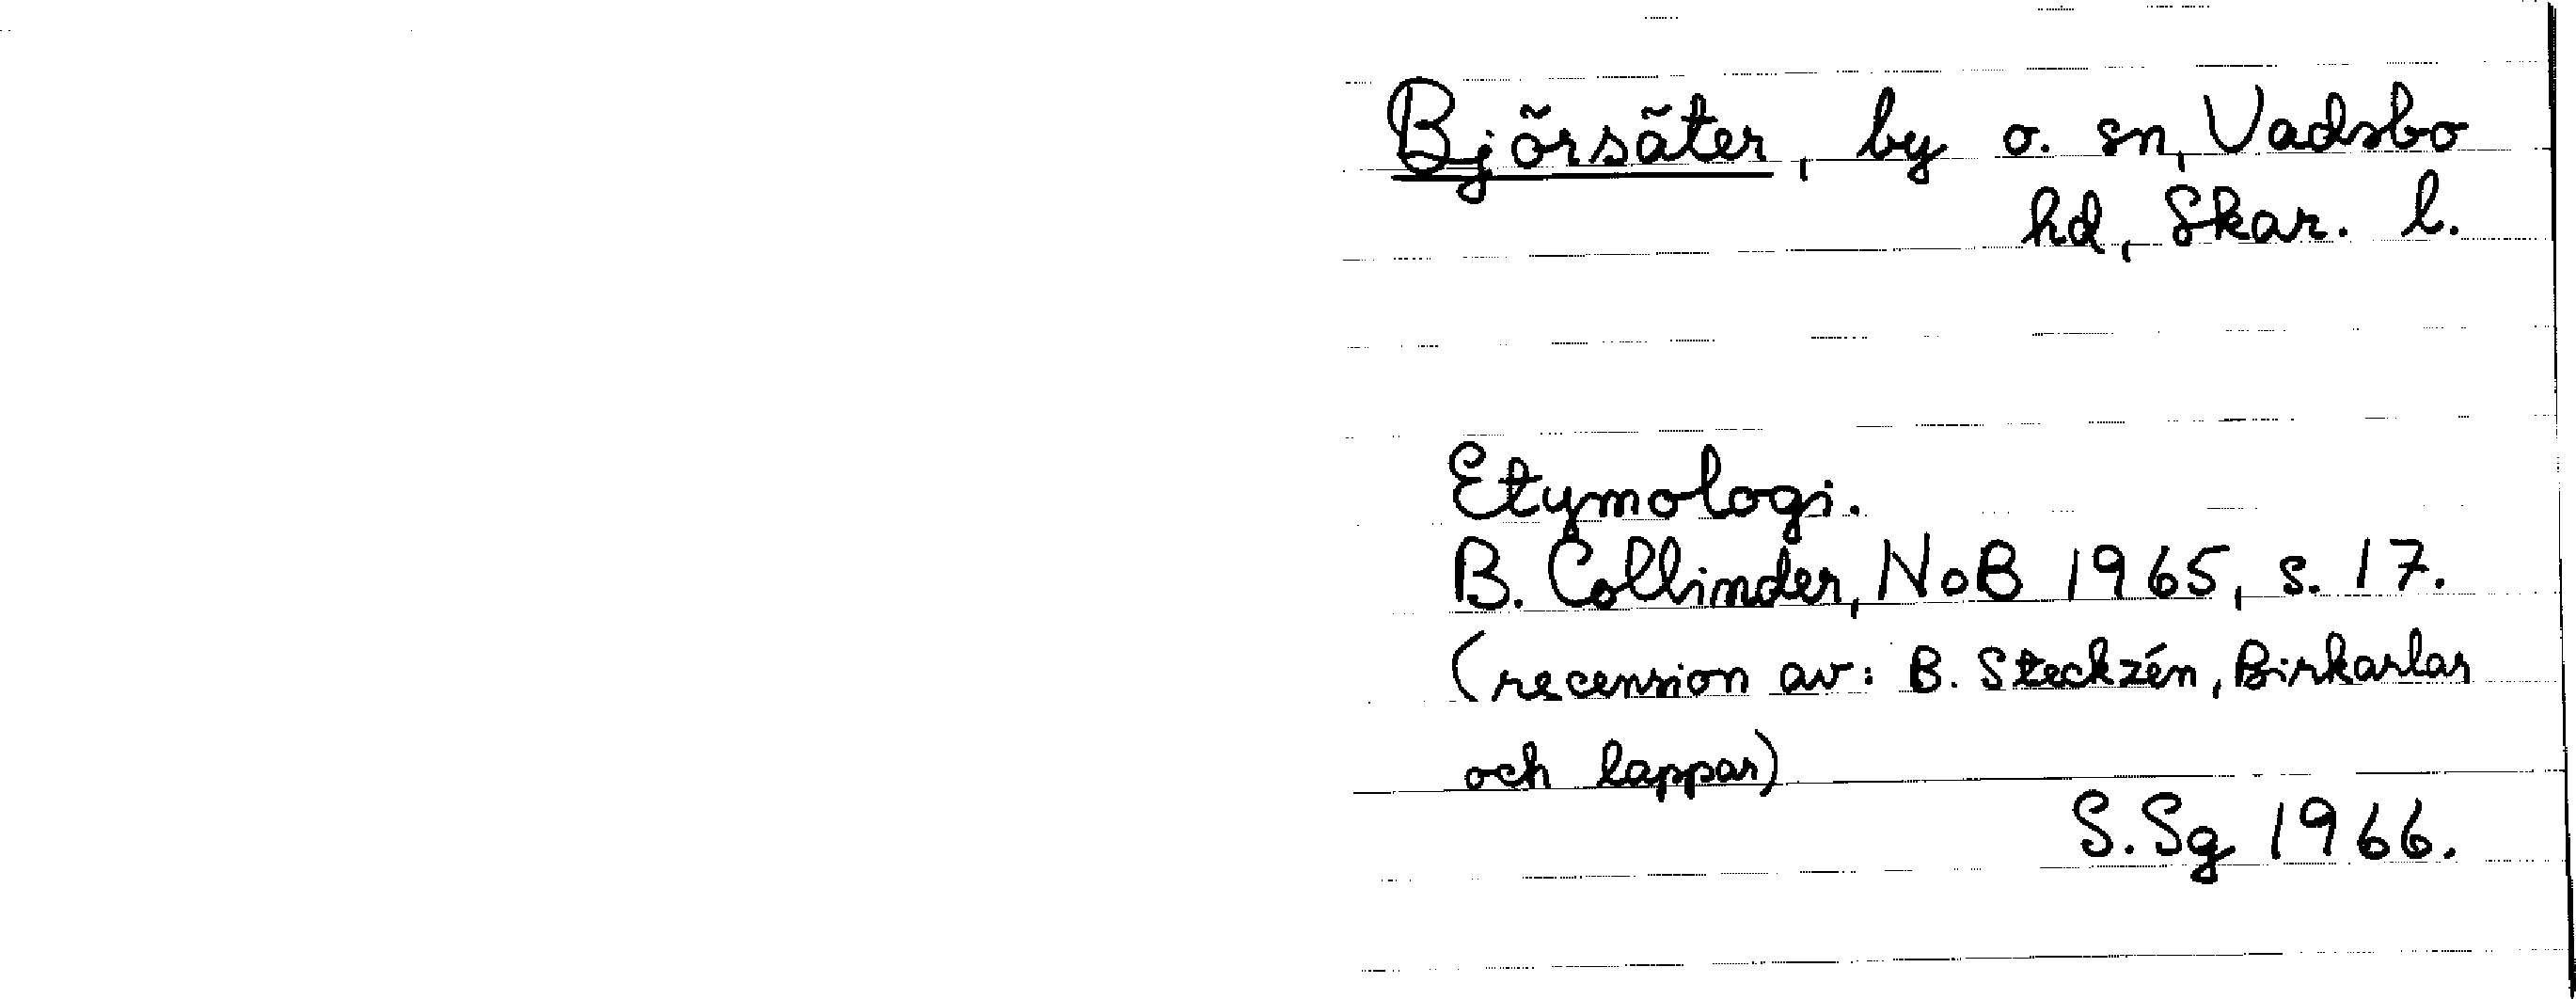 Björsäter, by o. sn, Vadsbo
hd, Skar. l.
Etymologi.
B. Collinder, NoB 1965, s. 17.
(recension av: B. Steckzén, Birkarlar
och lappar)
S.Sg 1966.